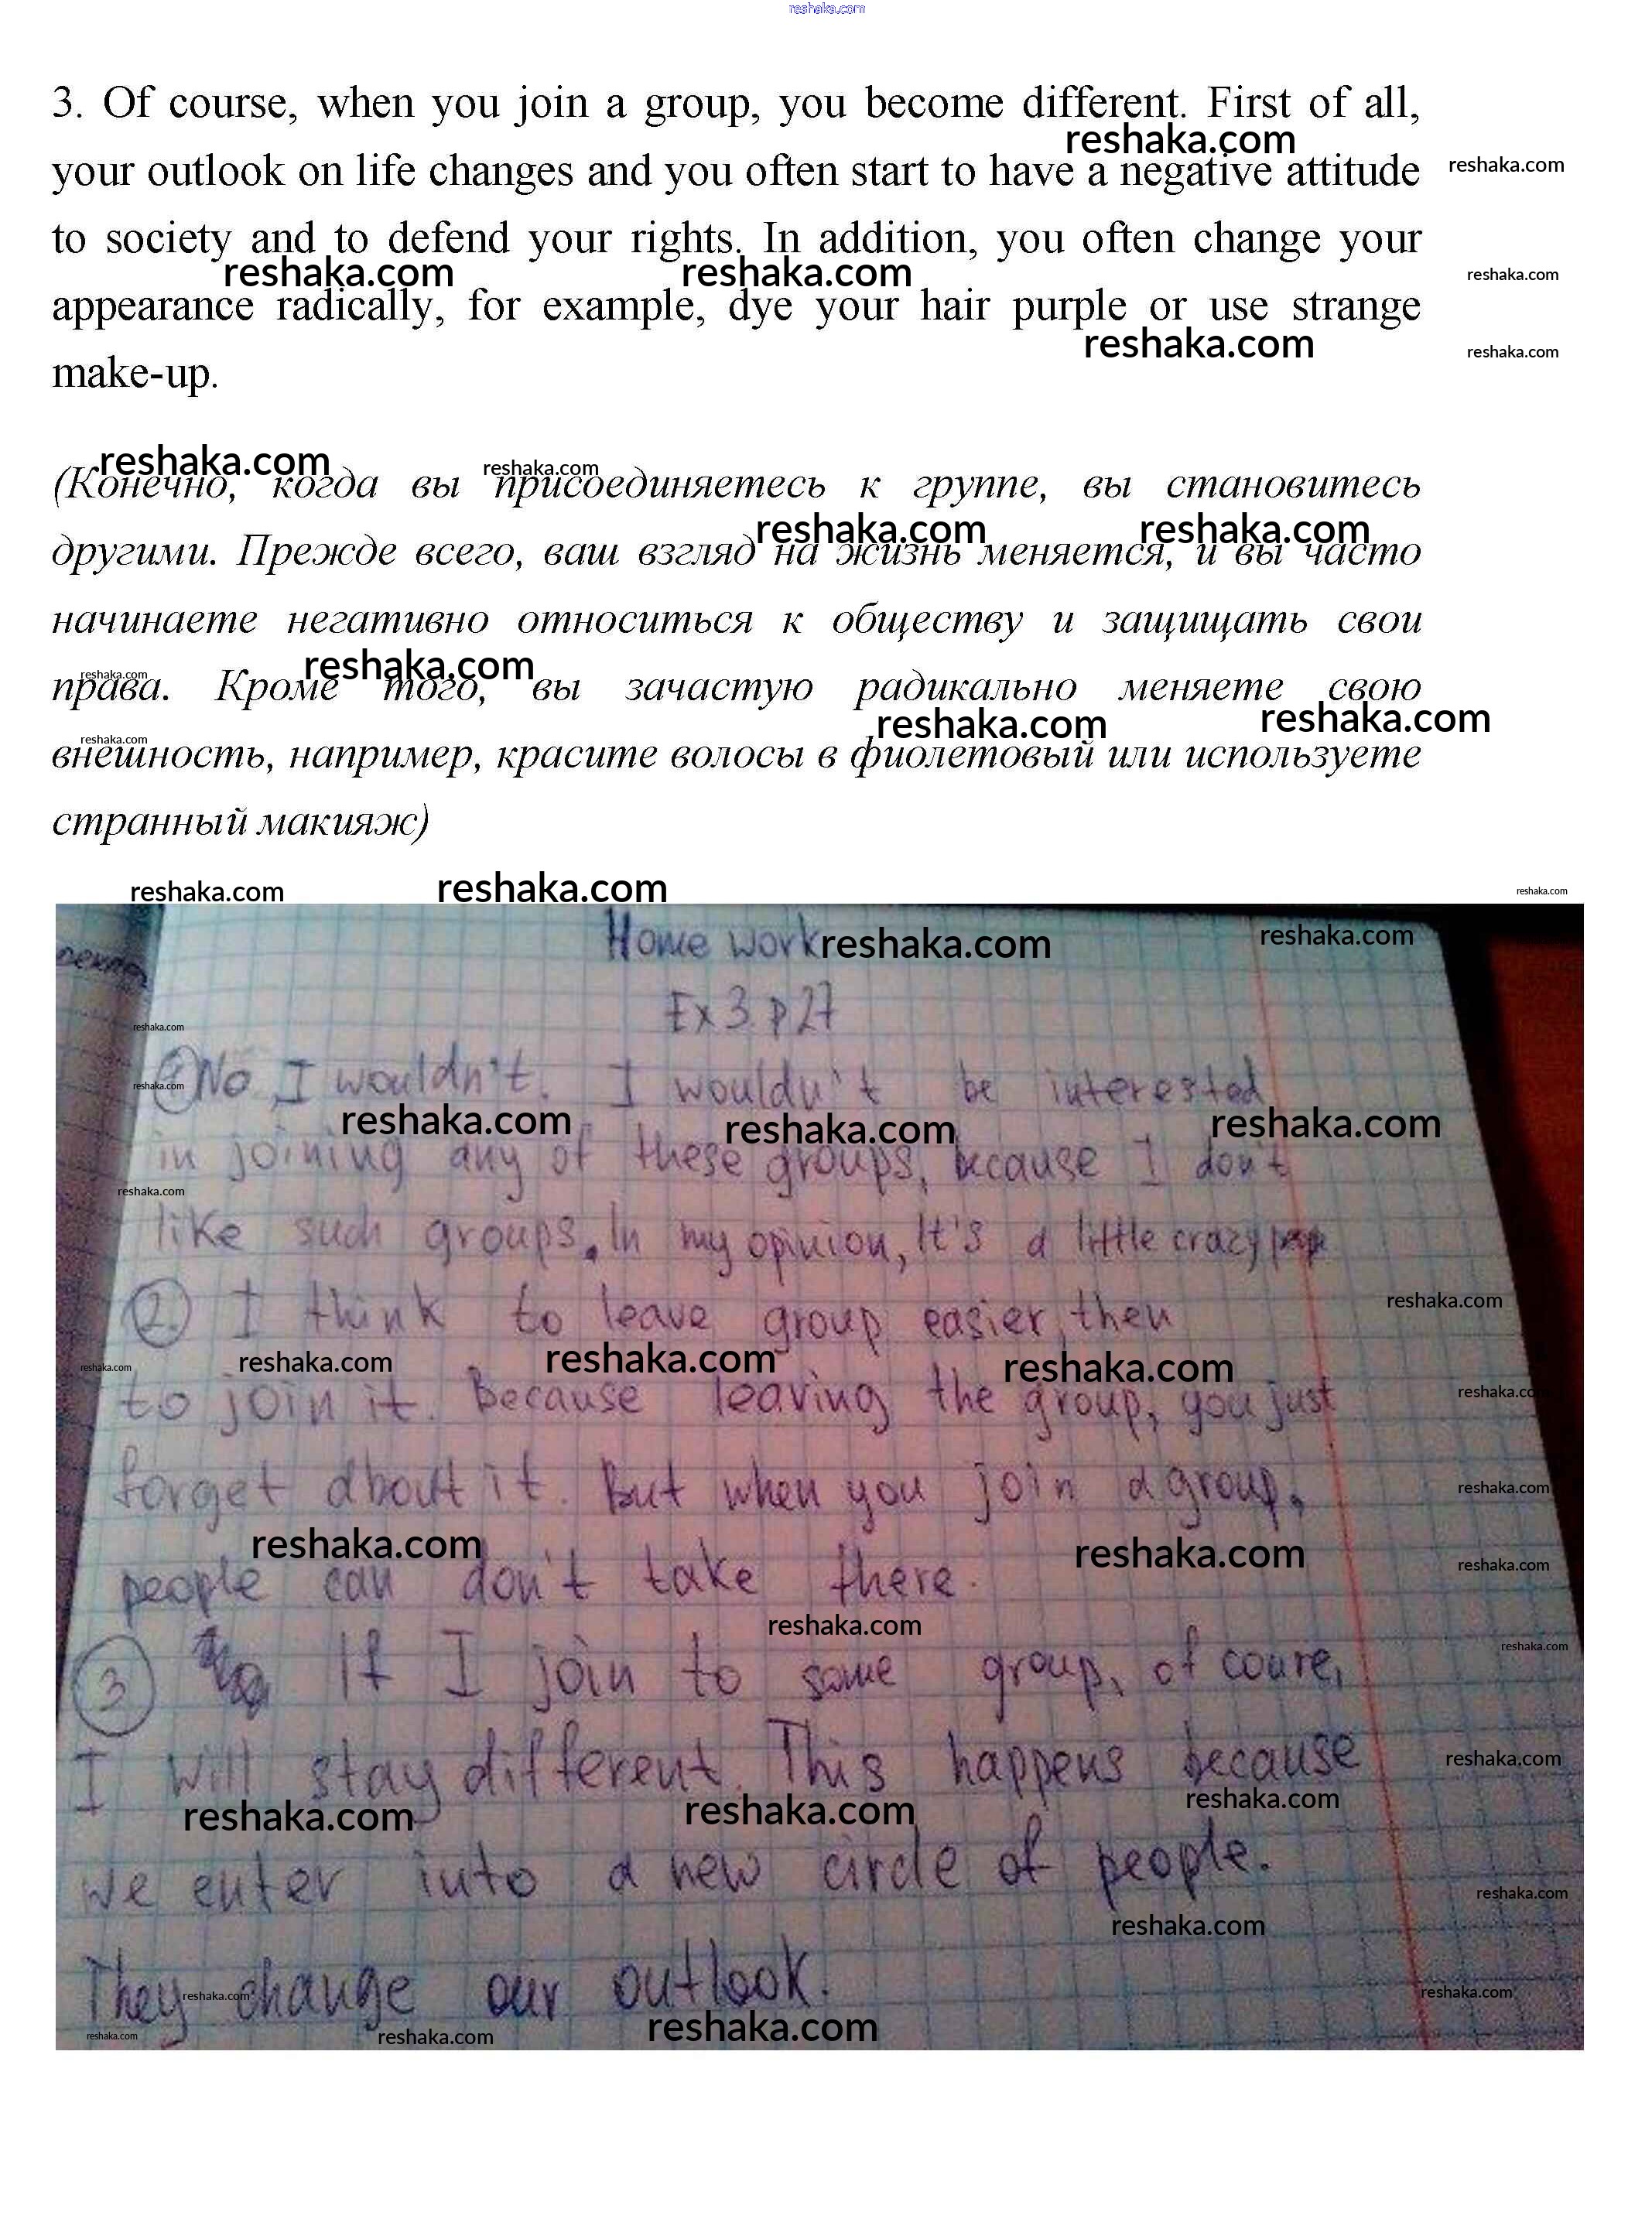 reshaka.com
3. Of course, when you join a group, you become different. First of all,
reshaka.com
your outlook on life changes and you often start to have a negative attitude
reshaka.com
to society and to defend your rights. In addition, you often change your
reshaka.com reshaka.com reshaka.com
appearance radically, for example, dye your hair purple or use strange
reshaka.com reshaka.com
make-up.
reshaka.com reshaka.com
(Конечно, когда вы присоединяетесь к группе, вы становитесь
reshaka.com reshaka.com
другими. Прежде всего, ваш взгляд на жизнь меняется, и вы часто
начинаете негативно относиться к обществу и защищать свои
reshaka.com reshaka.com
права. Кроме того, вы зачастую радикально меняете свою
reshaka.com reshaka.com reshaka.com
внешность, например, красите волосы в фиолетовый или используете
странный макияж)
reshaka.com reshaka.com reshaka.com
Home work reshaka.com reshaka.com
Ex 3. p 27
reshaka.com
No, I wouldn't. I wouldn't be interested
reshaka.com
reshaka.com reshaka.com reshaka.com
in joining any of these groups, because I don't
reshaka.com
like such groups. In my opinion, It's a little crazy
2. I think to leave group easier, then
reshaka.com
reshaka.com reshaka.com reshaka.com reshaka.com
to join it. Because leaving the group, you just
reshaka.com
forget about it. But when you join a group,
reshaka.com
reshaka.com reshaka.com reshaka.com
people can don't take there.
reshaka.com reshaka.com
3 If I join to some group, of coure,
I will stay different. This happens because
reshaka.com
reshaka.com reshaka.com reshaka.com
we enter into a new circle of people.
reshaka.com
reshaka.com
They change our outlook.
reshaka.com reshaka.com
reshaka.com reshaka.com reshaka.com